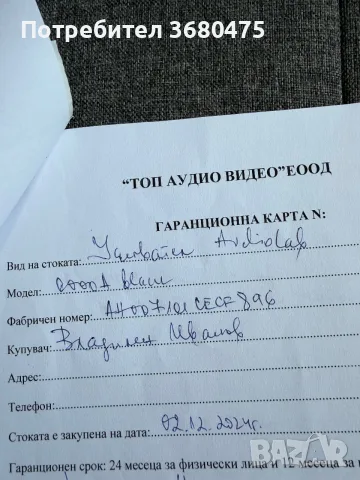 Потребител 3680475
"ТОП АУДИО ВИДЕО"ЕООД
ГАРАНЦИОННА КАРТА N:
Вид на стоката: Усилвател Audiolab
Модел: 6000A black
Фабричен номер: AH007101CECF896
Купувач: Владимир Иванов
Адрес:
Телефон:
Стоката е закупена на дата: 02.12.2024г.
Гаранционен срок: 24 месеца за физически лица и 12 месеца за
BAZAR